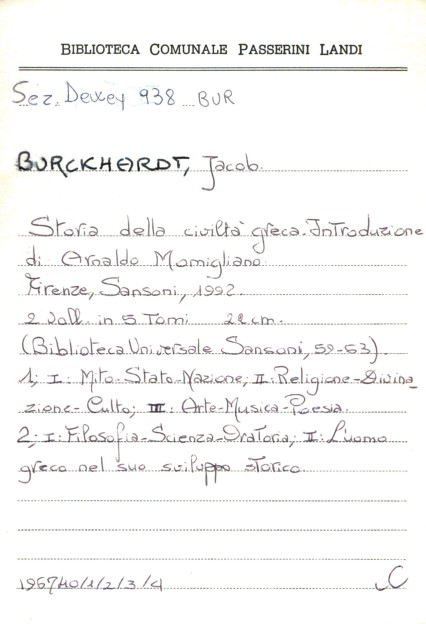 BIBLIOTECA COMUNALE PASSERINI LANDI
Sez. Dewey 938 BUR
BURCKHARDT, Jacob.
Storia della civiltà greca. Introduzione
di Arnaldo Momigliano.
Firenze, Sansoni, 1992.
2 voll. in 5 Tomi 22 cm.
(Biblioteca Universale Sansoni, 59-63).
1; I: Mito-Stato-Nazione; II: Religione-Divina_
zione-Culto; III: Arte-Musica-Poesia.
2; I: Filosofia-Scienza-Oratoria; II: L'uomo
greco nel suo sviluppo storico.
196740/1/2/3/4